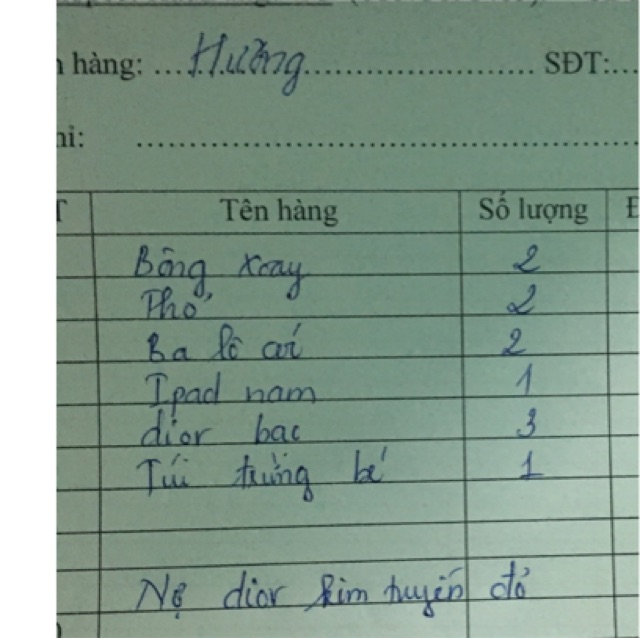 hàng: ... Hường ... SĐT:...
hỉ: ...
T Tên hàng Số lượng Đ
Bông xoay 2
Thỏ 2
Ba lô cói 2
Ipad nam 1
dior bạc 3
Túi trứng bé 1
Nợ dior kim tuyến đỏ